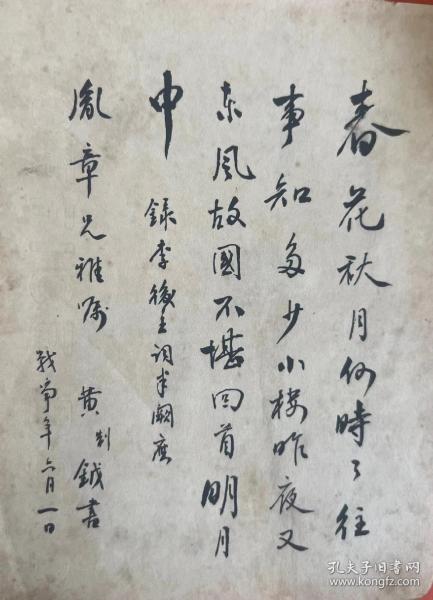 春花秋月何時了往
事知多少小楼昨夜又
东风故國不堪回首明月
中 錄李後主词半阙應
胤章兄雅嘱 黄钺書
战爭年六月一日
孔夫子旧书网
www.kongfz.com